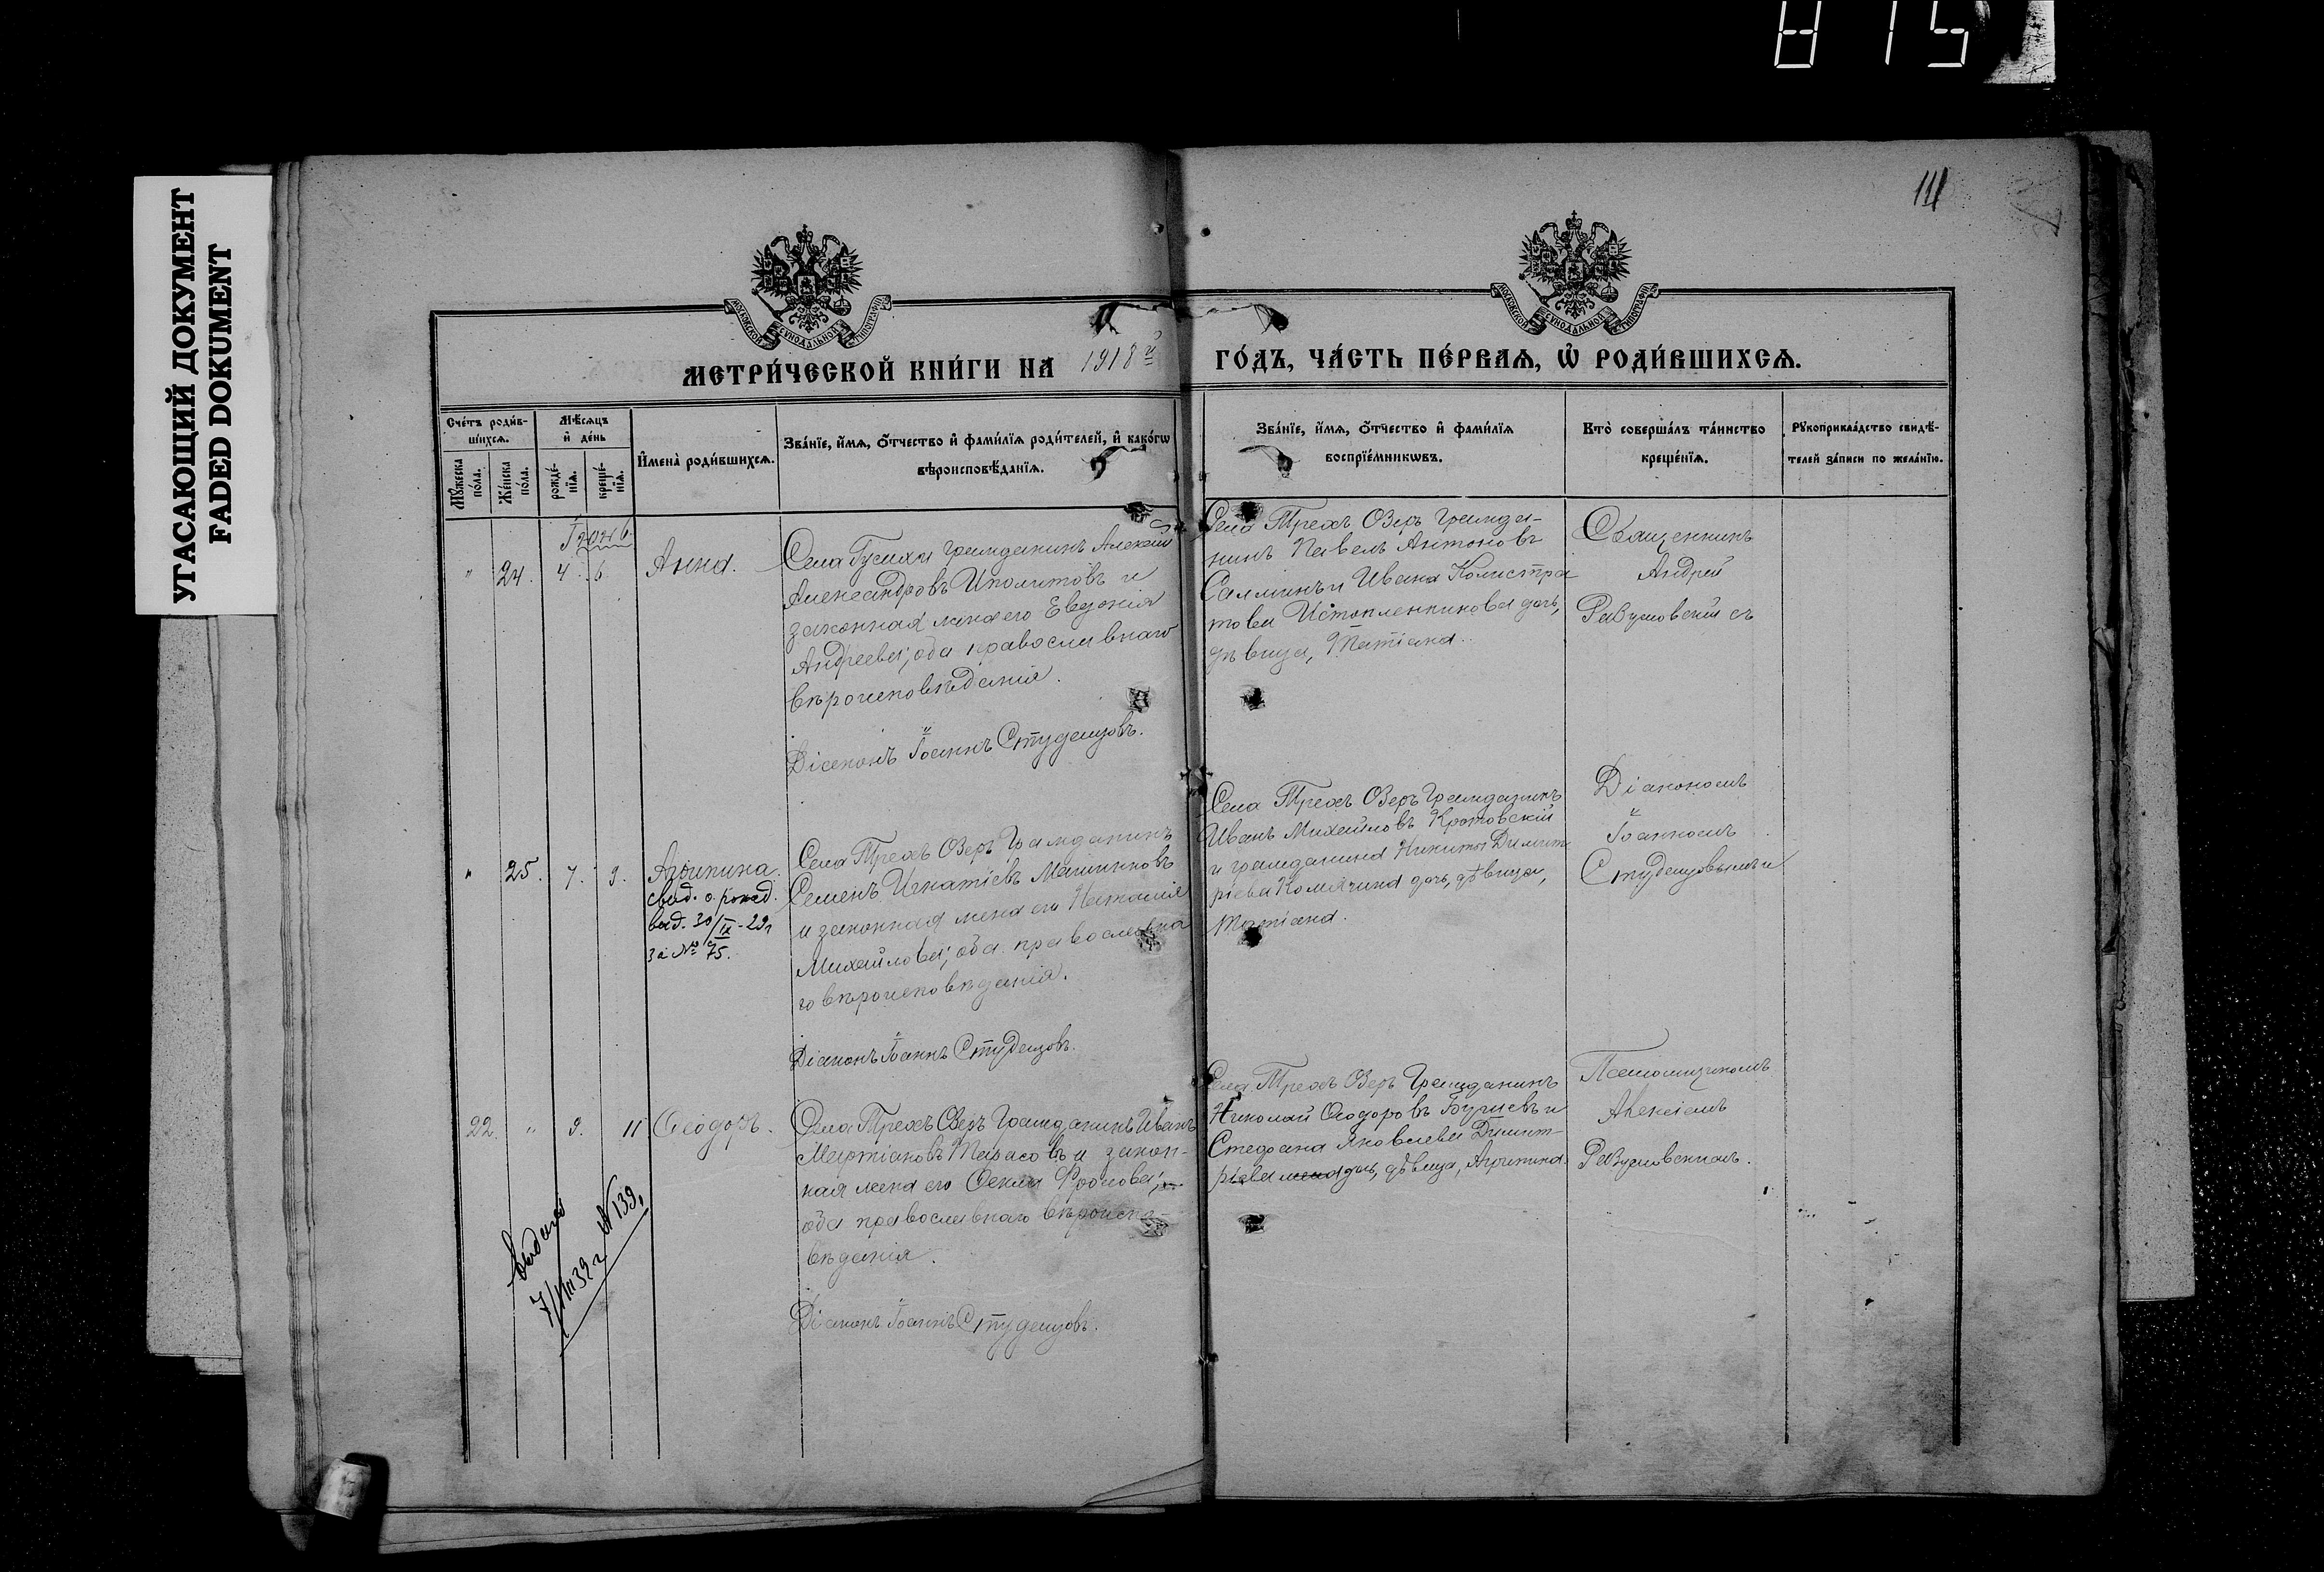 815
УГАСАЮЩИЙ ДОКУМЕНТ
FADED DOKUMENT
111
МОСКОВСКОЙ СѴНОДАЛЬНОЙ ТИПОГРАФІИ
МОСКОВСКОЙ СѴНОДАЛЬНОЙ ТИПОГРАФІИ
МЕТРИ́ЧЕСКОЙ КНИ́ГИ НА 1918й ГО́ДЪ, ЧА́СТЬ ПЕ́РВАѦ, Ѡ҆ РОДИ́ВШИХСѦ.
Сче́тъ роди́в-
шихсѧ.
Мꙋ́жеска
по́ла.
Же́нска
по́ла.
Мѣ́сѧцъ
и҆ де́нь
рожде́-
нїѧ.
креще́-
нїѧ.
И҆мена̀ роди́вшихсѧ.
Зва́нїе, и҆́мѧ, ѻ҆́тчество и҆ фами́лїѧ роди́телей, и҆ како́гѡ
вѣроисповѣ́данїѧ.
Зва́нїе, и҆́мѧ, ѻ҆́тчество и҆ фами́лїѧ
воспрїе́мникѡвъ.
Кто̀ соверша́лъ та́инство
креще́нїѧ.
Рꙋкоприкла́дство свидѣ́-
телей за́писи по жела́нїю.
Іюнь
" 24. 4. 6. Анна.
Села Гусихи гражданинъ Алексій
Александровъ Иполитовъ и
законная жена его Евдокія
Андреева; оба православнаго
вѣроисповѣданія.
Діаконъ Іоаннъ Студенцовъ.
Села Трехъ Озеръ гражда-
нинъ Павелъ Антоновъ
Салминъ и Ивана Калистра
това Истопленникова дочь,
дѣвица, Татіана.
Священникъ
Андрей
Разумовскій съ
" 25. 7. 9. Агрипина.
свид. о рожд.
выд. 30/IX-29г
за № 75.
Села Трехъ Озеръ Гражданинъ
Семенъ Игнатіевъ Машинновъ
и законная жена его Наталія
Михайлова; оба православна
го вѣроисповѣданія.
Діаконъ Іоаннъ Студенцовъ.
Села Трехъ Озеръ Гражданинъ
Иванъ Михайловъ Кротовскій
и гражданина Никиты Димит
ріева Комягина дочь, дѣвица,
Татіана.
Діакономъ
Іоанномъ
Студенцовымъ и
22. " 9. 11 Ѳеодоръ.
выдано
7/VIII 39 г № 139,
Села Трехъ Озеръ Гражданинъ Иванъ
Мартіановъ Тарасовъ и закон-
ная жена его Ѳекла Фролова;
оба православнаго вѣроиспо-
вѣданія.
Діаконъ Іоаннъ Студенцовъ.
Села Трехъ Озеръ Гражданинъ
Николай Ѳеодоровъ Бугаевъ и
Стефана Яковлева Димит-
ріева жена дочь, дѣвица, Агрипина.
Псаломщикомъ
Алексіемъ
Разумовскимъ.